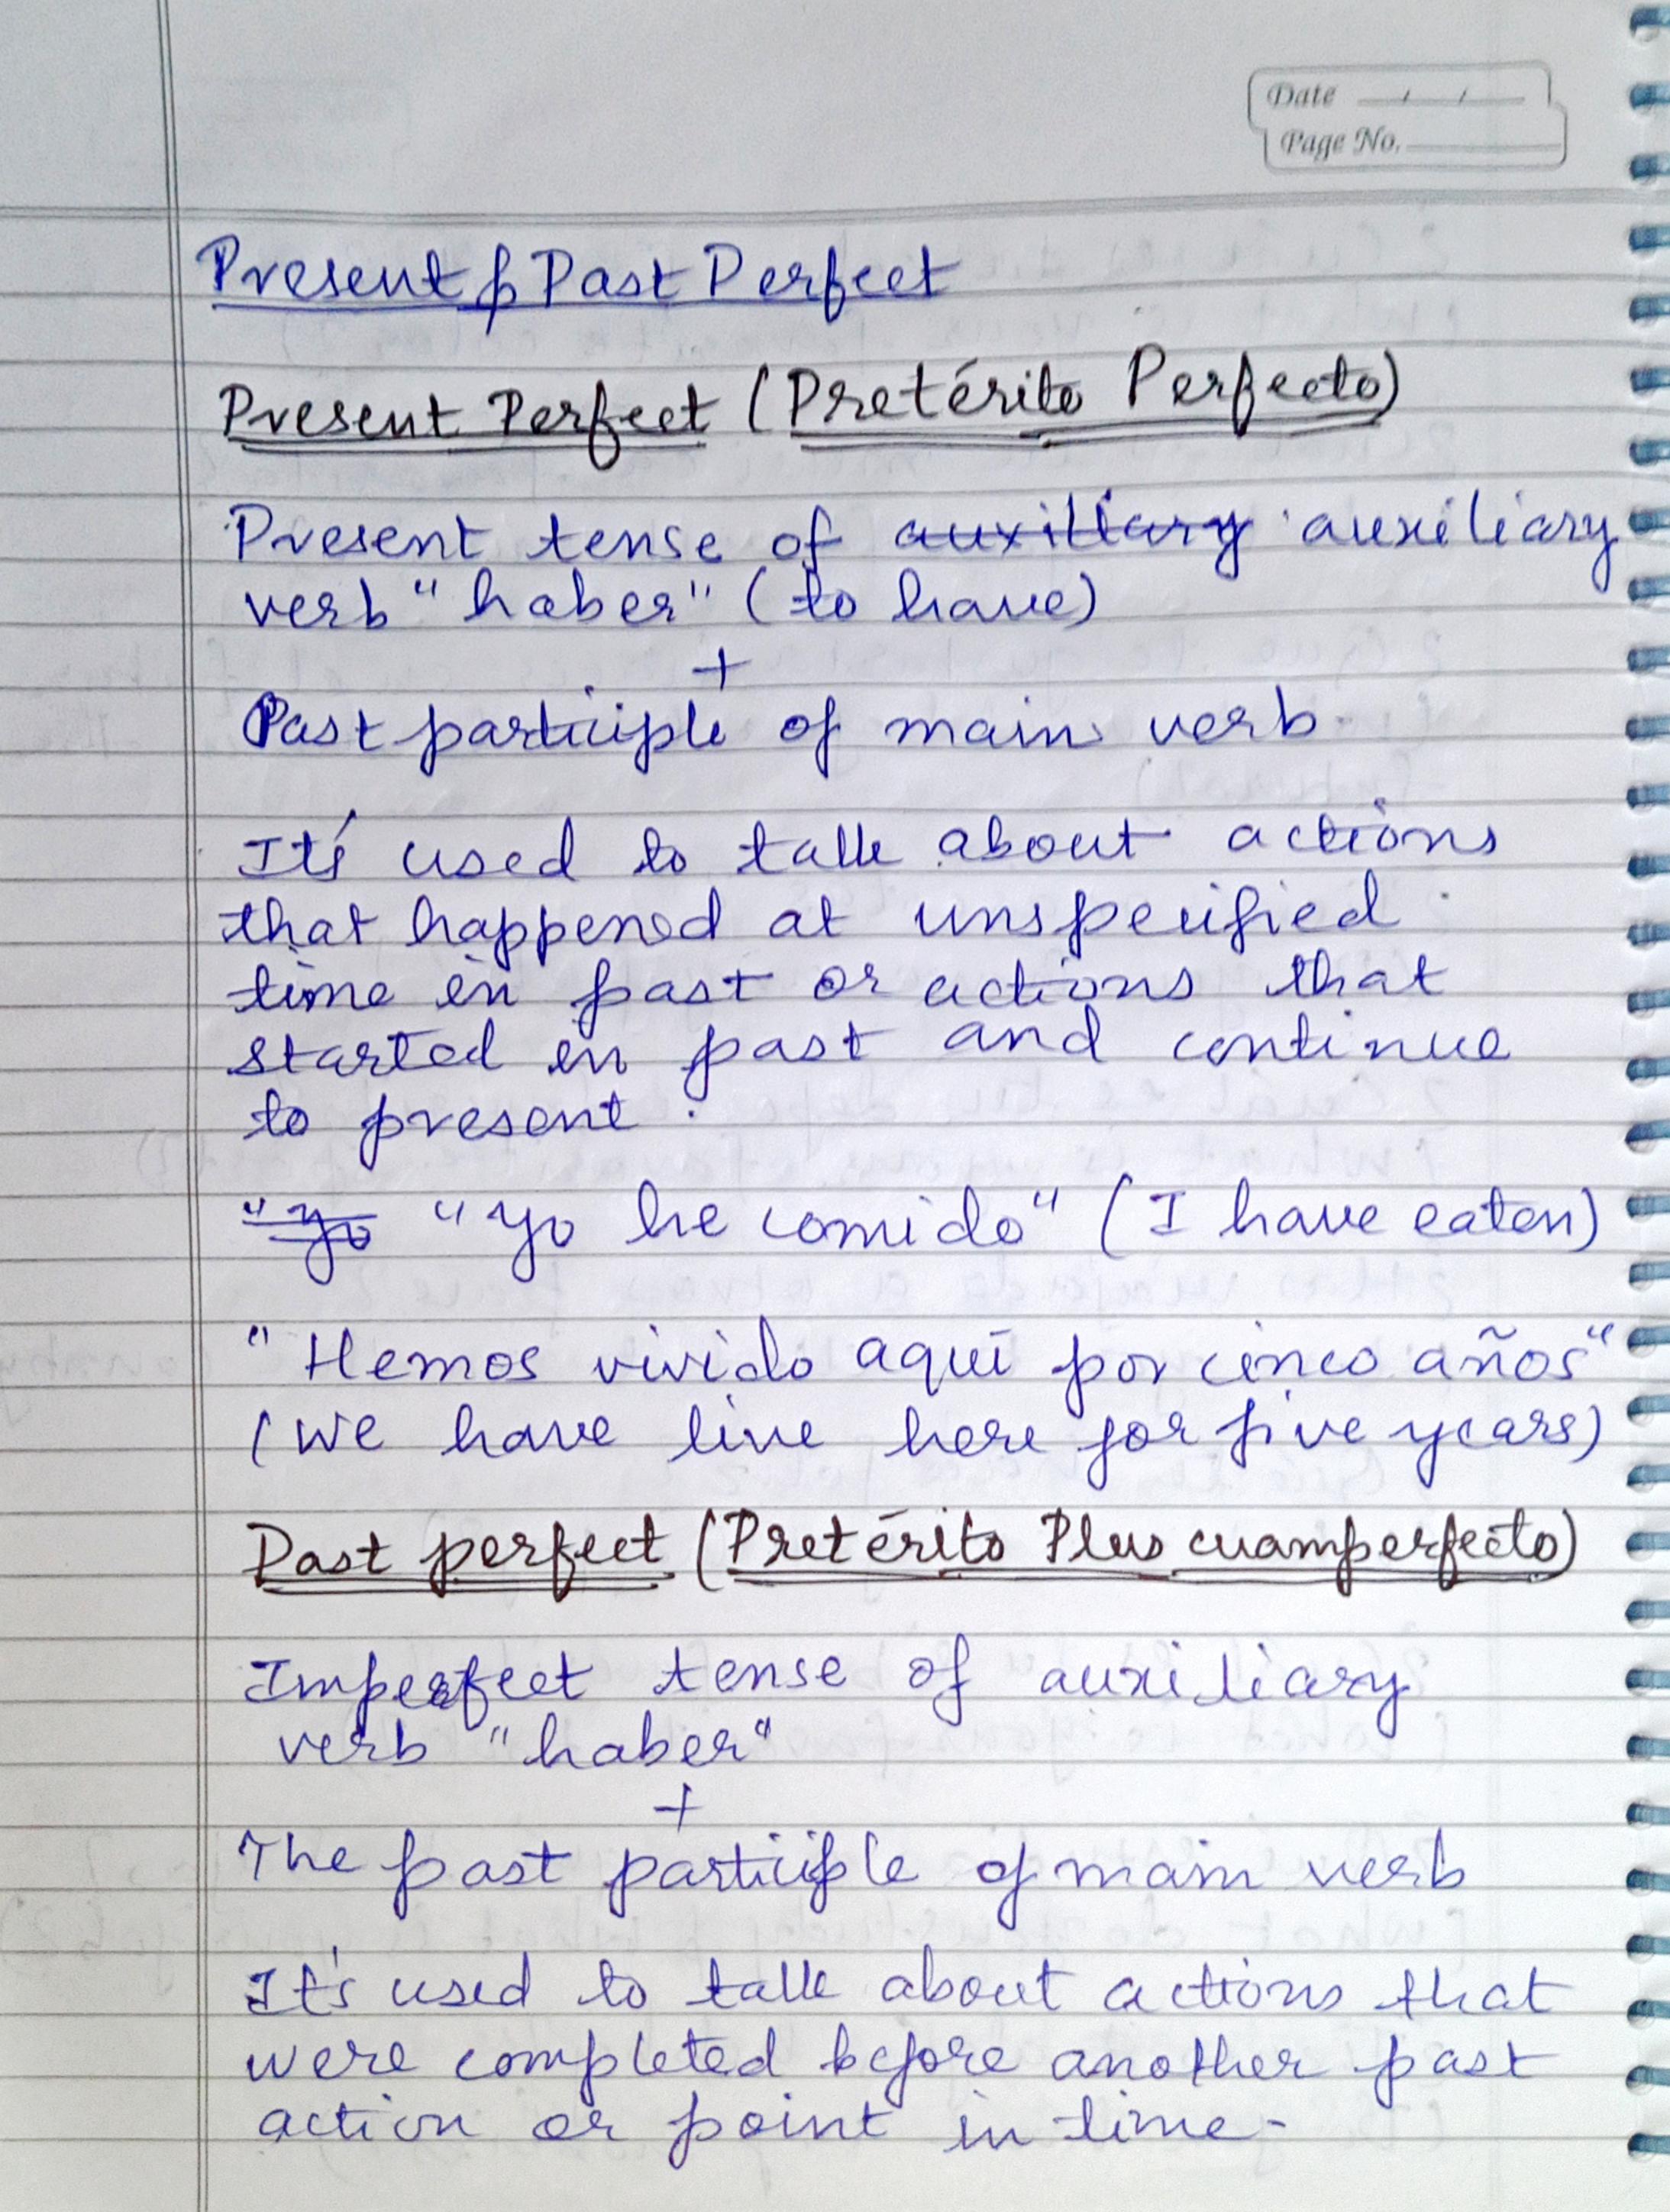 Date / /
Page No.
Present & Past Perfect
Present Perfect (Pretérito Perfecto)
Present tense of auxillary auxiliary
verb "haber" (to have)
+
Past participle of main verb.
It's used to talk about actions
that happened at unspecified
time in past or actions that
started in past and continue
to present.
"yo "yo he comido" (I have eaten)
"Hemos vivido aquí por cinco años"
(We have live here for five years)
Past perfect (Pretérito Plus cuamperfecto)
Imperfect tense of auxiliary
verb "haber"
+
The past participle of main verb
It's used to talk about actions that
were completed before another past
action or point in time.